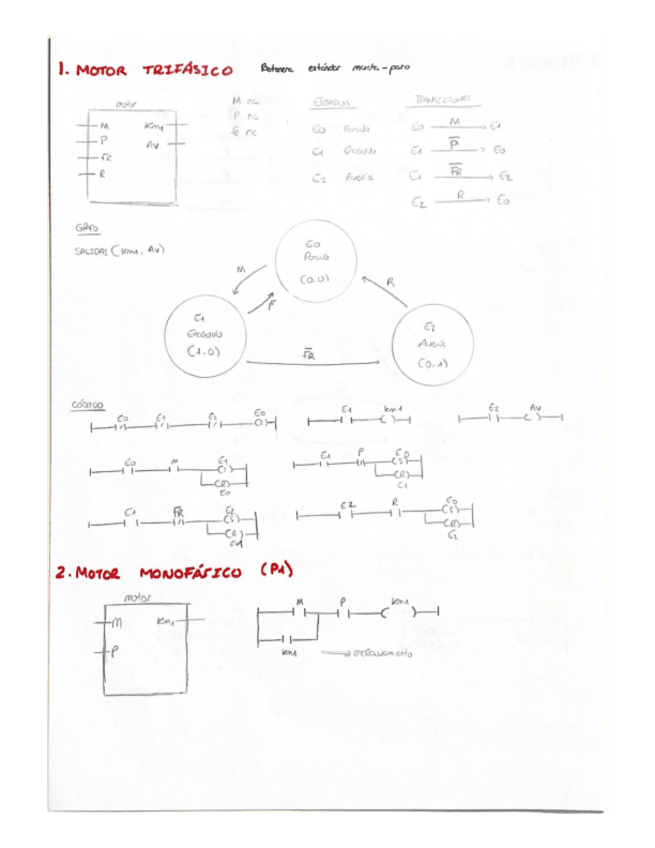 1. MOTOR TRIFÁSICO Botonera estándar marcha-paro
motor
M Km1
P AV
FR
R
M na
P nc
nc
ESTADOS
E0 Parado
E1
E2 Avería
TRANSICIONES
E0 M E1
E1 P̅ E0
E1 F̅R̅ E2
E2 R E0
GRAFO
SALIDAS (Km1, AV)
E0
Parado
(0.0)
M
R
E1
(1.0)
E2
Avería
(0.1)
F̅R̅
CÓDIGO
E0 E1 E2 E0
(S)
E1 Km1
( )
E2 AV
( )
E0 M E1
(S)
(R)
E0
E1 P E0
(S)
(R)
E1
E1 F̅R̅ E2
(S)
(R)
E1
E2 R E0
(S)
(R)
E2
2. MOTOR MONOFÁSICO (P1)
motor
M Km1
P
M P Km1
( )
Km1